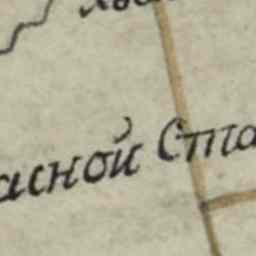 асной Ста